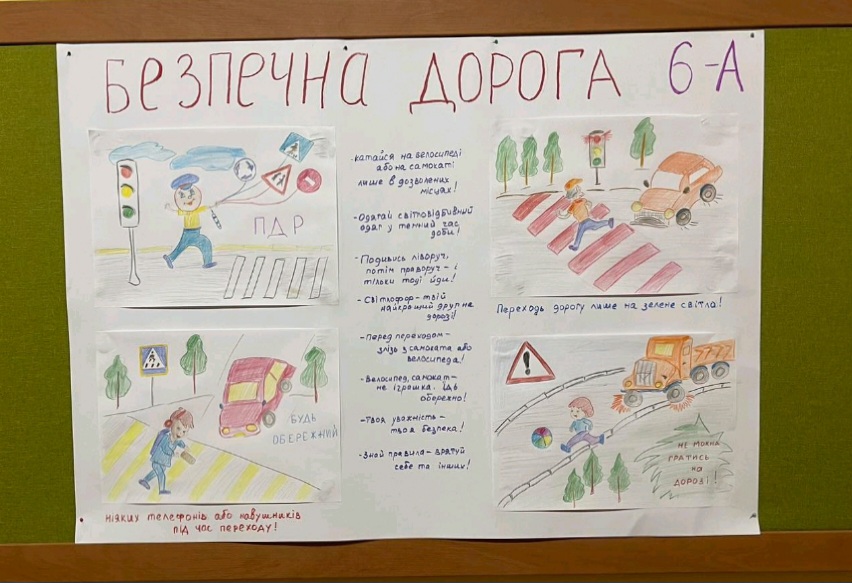 БЕЗПЕЧНА ДОРОГА 6-А
ПДР
-катайся на велосипеді
або на самокаті
лише в дозволених
місцях!
-Одягай світловідбивний
одяг у темний час
доби!
-Подивись ліворуч,
потім праворуч- і
тільки тоді йди!
-Світлофор-твій
найкращий друг на
дорозі!
-Перед переходом-
злізь з самоката або
велосипеда!
-Велосипед, самокат-
не іграшка. Їдь
обережно!
-Твоя уважність-
твоя безпека!
-Знай правила-врятуй
себе та інших!
Переходь дорогу лише на зелене світло!
БУДЬ
ОБЕРЕЖНИЙ
ніяких телефонів або навушників
під час переходу!
НЕ МОЖНА
ГРАТИСЬ
НА
ДОРОЗІ!